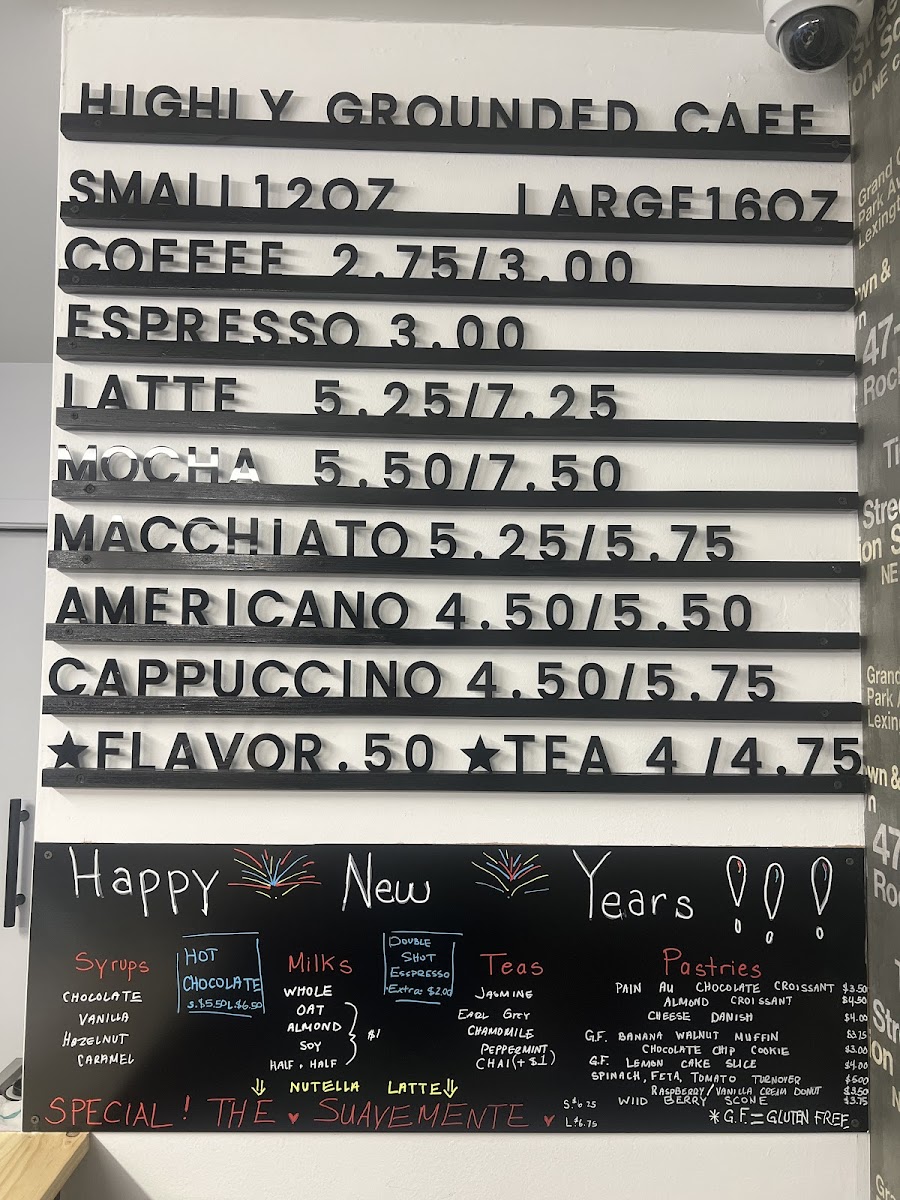 HIGHLY GROUNDED CAFE
SMALL 12OZ LARGE 16OZ
COFFEE 2.75/3.00
ESPRESSO 3.00
LATTE 5.25/7.25
MOCHA 5.50/7.50
MACCHIATO 5.25/5.75
AMERICANO 4.50/5.50
CAPPUCCINO 4.50/5.75
★FLAVOR .50 ★TEA 4 /4.75
Happy New Years !!!
Syrups
CHOCOLATE
VANILLA
HAZELNUT
CARAMEL
HOT
CHOCOLATE
S.$5.50 L.$6.50
Milks
WHOLE
OAT
ALMOND
SOY
HALF + HALF
$1
DOUBLE
SHOT
ESSPRESSO
Extra: $2.00
Teas
JASMINE
EARL GREY
CHAMOMILE
PEPPERMINT
CHAI (+$1)
Pastries
PAIN AU CHOCOLATE CROISSANT $3.50
ALMOND CROISSANT $4.50
CHEESE DANISH $4.00
G.F. BANANA WALNUT MUFFIN $3.75
CHOCOLATE CHIP COOKIE $3.00
G.F. LEMON CAKE SLICE $4.00
SPINACH, FETA, TOMATO TURNOVER $6.00
RASPBERRY/VANILLA CREAM DONUT $3.50
WILD BERRY SCONE $3.75
*G.F.=GLUTEN FREE
NUTELLA LATTE
SPECIAL! THE ♥ SUAVEMENTE ♥
S.$6.25
L$6.75
NE
Grand
Park Av
Lexingt
wn &
47-
Rock
Stree
on S
NE
Grand
Park A
Lexin
wn &
n
47
Ro
Str
on